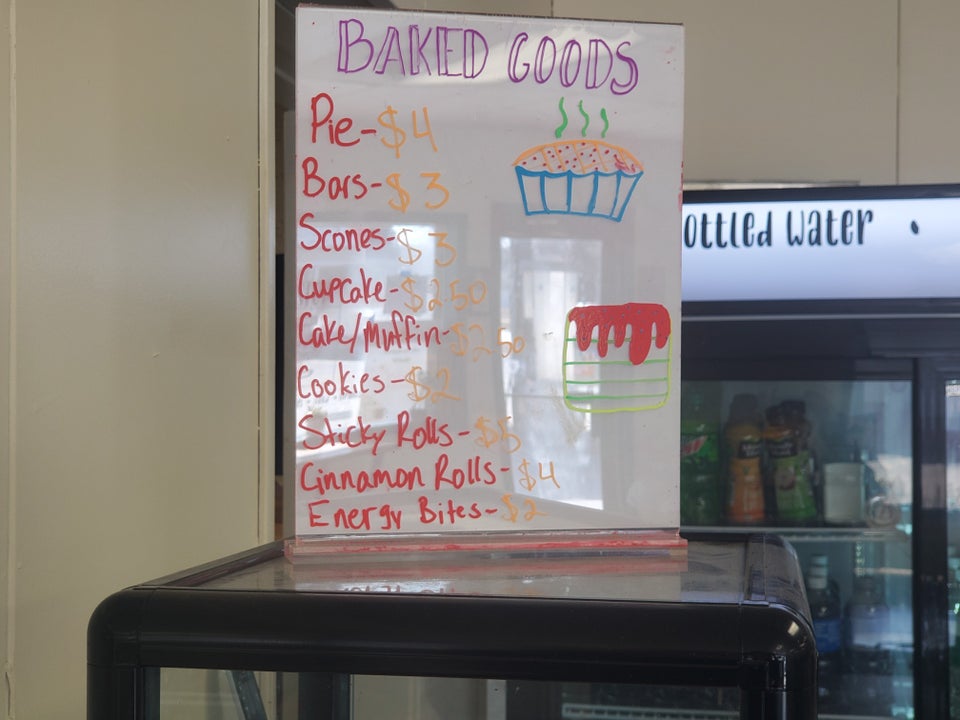 BAKED GOODS
Pie-$4
Bars-$3
Scones-$3
Cupcake-$2.50
Cake/Muffin-$2.50
Cookies-$2
Sticky Rolls-$5
Cinnamon Rolls-$4
Energy Bites-$2
ottled Water